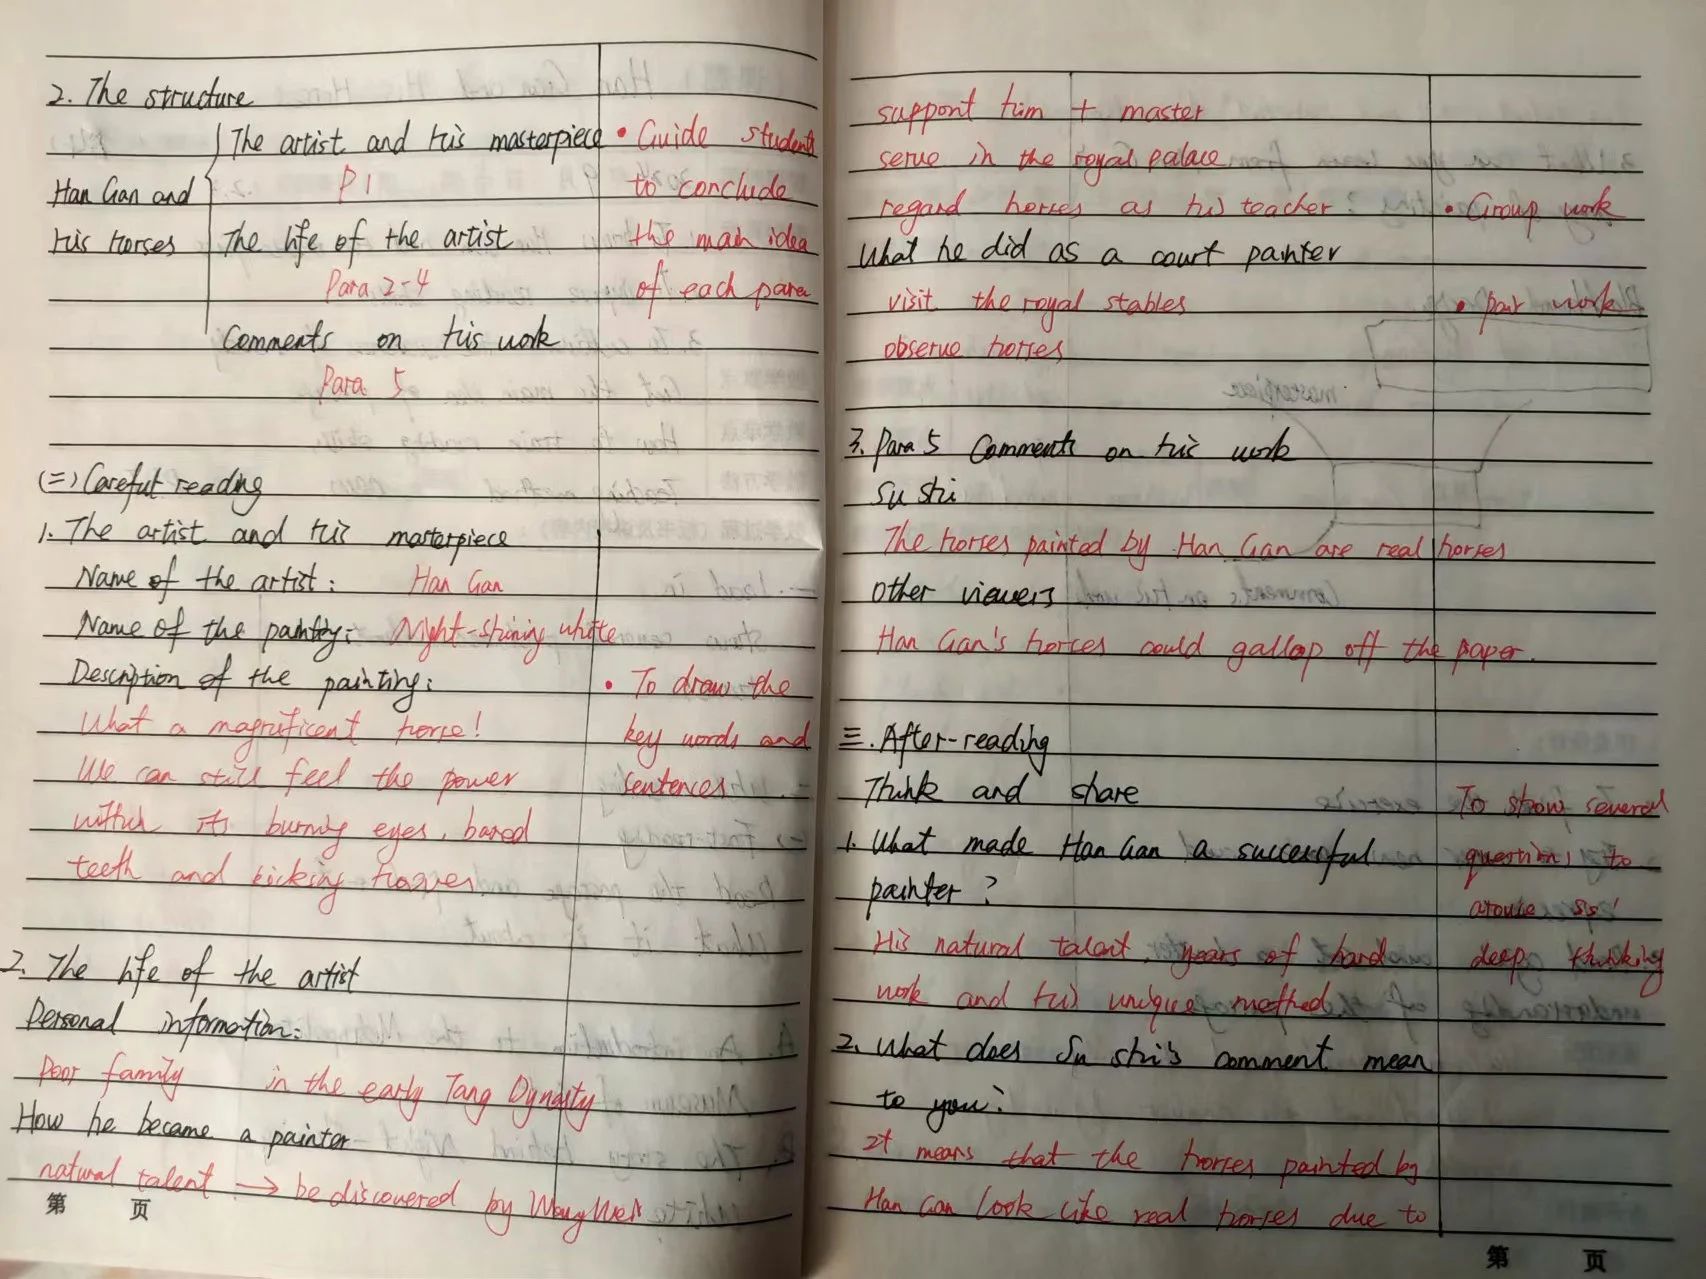 2. The structure
The artist and his masterpiece
P1
Han Gan and
his horses
The life of the artist
Para 2-4
Comments on his work
Para 5
• Guide student
to conclude
the main idea
of each para
(二) Careful reading
1. The artist and his masterpiece
Name of the artist: Han Gan
Name of the painting: Night-shining white
Description of the painting:
What a magnificent horse!
We can still feel the power
within its burning eyes, bared
teeth and kicking hooves
• To draw the
key words and
sentences
2. The life of the artist
Personal information:
Poor family in the early Tang Dynasty
How he became a painter
natural talent → be discovered by Wang Wei
第 页
support him + master
serve in the royal palace
regard horses as his teacher
• Group work
What he did as a court painter
visit the royal stables
• pair work
observe horses
3. Para 5 Comments on his work
Su Shi
The horses painted by Han Gan are real horses
other viewers
Han Gan's horses could gallop off the paper.
三. After-reading
Think and share
1. What made Han Gan a successful
painter?
His natural talent, years of hard
work and his unique method
To show several
questions to
arouse ss'
deep thinking
2. What does Su Shi's comment mean
to you?
It means that the horses painted by
Han Gan look like real horses due to
第 页